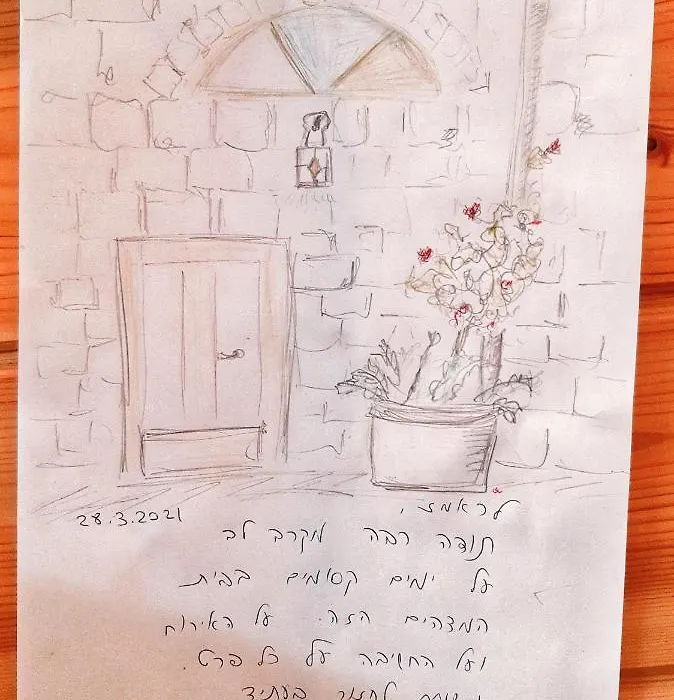 28.3.2021
לראמז,
תודה רבה מקרב לב
על ימים קסומים בבית
המדהים הזה. על האירוח
ועל החשיבה על כל פרט.
לחזור בעתיד